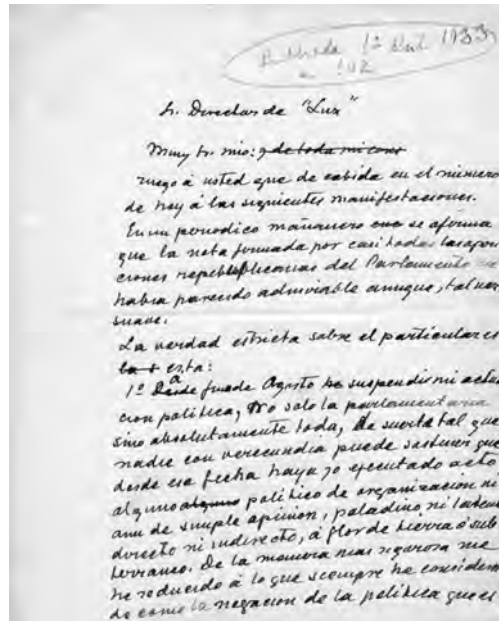 1º 1933
a LUZ
Sr. Director de "Luz"
Muy Sr. mio: y de toda mi cons
ruego á usted que de cabida en el número
de hoy á las siguientes manifestaciones.
En un periodico mañanero se afirma
que la nota firmada por casi todas las
ciones republicanas del Parlamento
habia parecido admirable aunque, tal vez
suave.
La verdad estricta sobre el particular es
esta:
1º Desde fin de Agosto he suspendido mi actu
cion politica, No solo la parlamentaria
sino absolutamente toda, de suerte tal que
nadie con verecundia puede sostener que
desde esa fecha haya yo ejecutado acto
alguno alguno politico de organizacion ni
aun de simple opinion, paladino ni latente
directo ni indirecto, á flor de tierra ó sub
terraneo. De la manera mas rigurosa me
he reducido á lo que siempre he considera
do como la negacion de la politica que es